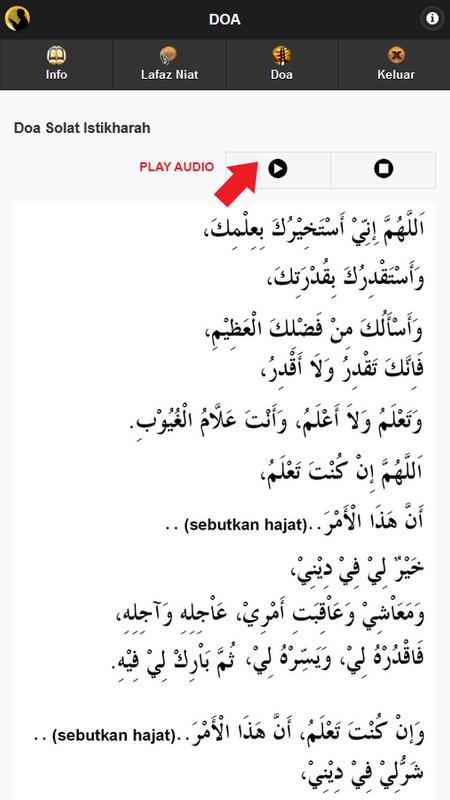 DOA
Info Lafaz Niat Doa Keluar
Doa Solat Istikharah
PLAY AUDIO
اَللَّهُمَّ إِنِّيْ أَسْتَخِيْرُكَ بِعِلْمِكَ،
وَأَسْتَقْدِرُكَ بِقُدْرَتِكَ،
وَأَسْأَلُكَ مِنْ فَضْلِكَ الْعَظِيْمِ،
فَإِنَّكَ تَقْدِرُ وَلَا أَقْدِرُ،
وَتَعْلَمُ وَلَا أَعْلَمُ، وَأَنْتَ عَلَّامُ الْغُيُوْبِ.
اَللَّهُمَّ إِنْ كُنْتَ تَعْلَمُ،
أَنَّ هَذَا الْأَمْرَ..(sebutkan hajat)..
خَيْرٌ لِيْ فِيْ دِيْنِيْ،
وَمَعَاشِيْ وَعَاقِبَتِ أَمْرِيْ، عَاجِلِهِ وَآجِلِهِ،
فَاقْدُرْهُ لِيْ، وَيَسِّرْهُ لِيْ، ثُمَّ بَارِكْ لِيْ فِيْهِ.
وَإِنْ كُنْتَ تَعْلَمُ، أَنَّ هَذَا الْأَمْرَ..(sebutkan hajat)..
شَرٌّلِيْ فِيْ دِيْنِيْ،